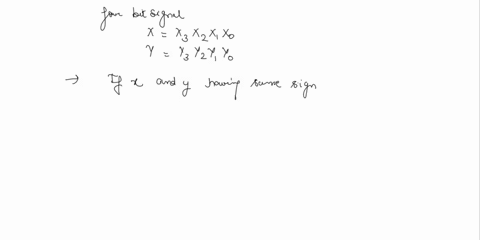 four bit signal
X = X₃ X₂ X₁ X₀
Y = Y₃ Y₂ Y₁ Y₀
→ If x and y having same sign